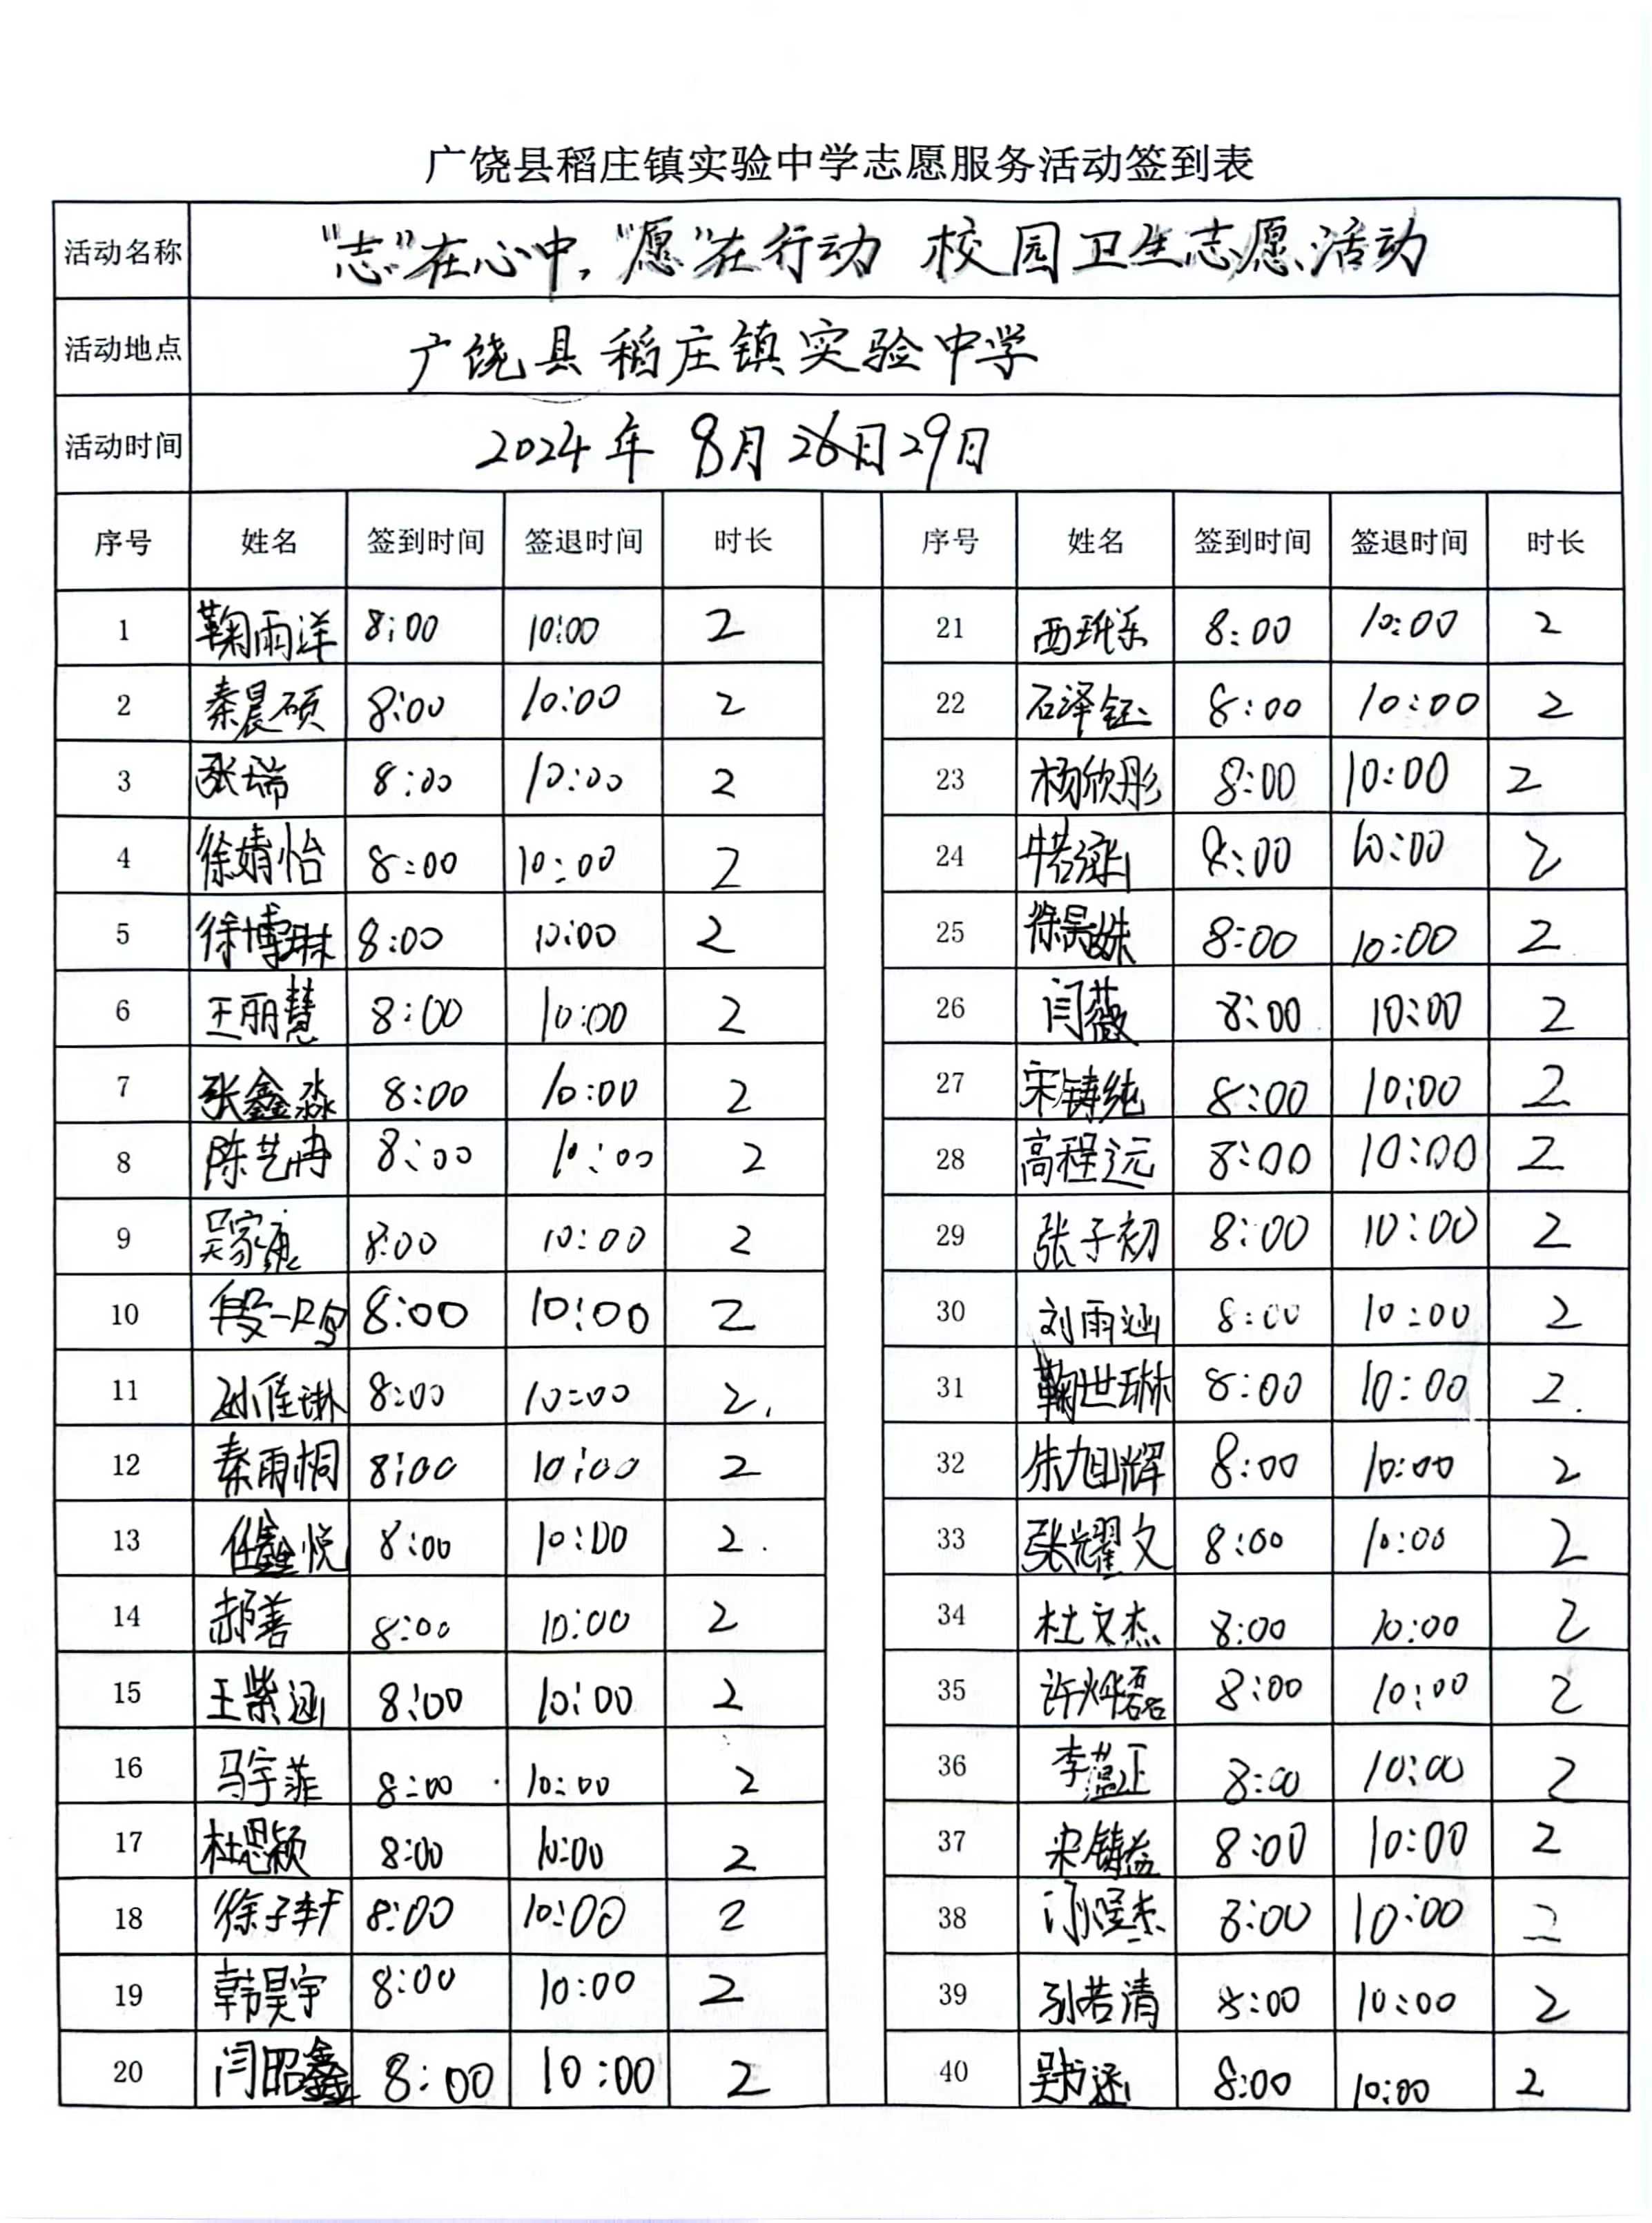 广饶县稻庄镇实验中学志愿服务活动签到表
活动名称 “志”在心中，“愿”在行动 校园卫生志愿活动
活动地点 广饶县稻庄镇实验中学
活动时间 2024年 8月26日29日
序号 姓名 签到时间 签退时间 时长 序号 姓名 签到时间 签退时间 时长
1 鞠雨洋 8:00 10:00 2 21 8:00 10:00 2
2 秦晨硕 8:00 10:00 2 22 石泽钰 8:00 10:00 2
3 张瑞 8:00 10:00 2 23 杨欣彤 8:00 10:00 2
4 徐婧怡 8:00 10:00 2 24 8:00 10:00 2
5 徐博琳 8:00 10:00 2 25 徐昊姝 8:00 10:00 2
6 王丽慧 8:00 10:00 2 26 闫薇 8:00 10:00 2
7 张鑫淼 8:00 10:00 2 27 宋铸纯 8:00 10:00 2
8 陈艺冉 8:00 10:00 2 28 高程远 8:00 10:00 2
9 吴家康 8:00 10:00 2 29 张子初 8:00 10:00 2
10 段一鸣 8:00 10:00 2 30 刘雨涵 8:00 10:00 2
11 孙佳琳 8:00 10:00 2 31 鞠世琳 8:00 10:00 2
12 秦雨桐 8:00 10:00 2 32 朱旭辉 8:00 10:00 2
13 任鑫悦 8:00 10:00 2 33 张耀文 8:00 10:00 2
14 郝善 8:00 10:00 2 34 杜文杰 8:00 10:00 2
15 王紫涵 8:00 10:00 2 35 许烨磊 8:00 10:00 2
16 马宇菲 8:00 10:00 2 36 8:00 10:00 2
17 杜思颖 8:00 10:00 2 37 宋铸益 8:00 10:00 2
18 徐子轩 8:00 10:00 2 38 8:00 10:00 2
19 韩昊宇 8:00 10:00 2 39 孙若清 8:00 10:00 2
20 闫昭鑫 8:00 10:00 2 40 8:00 10:00 2